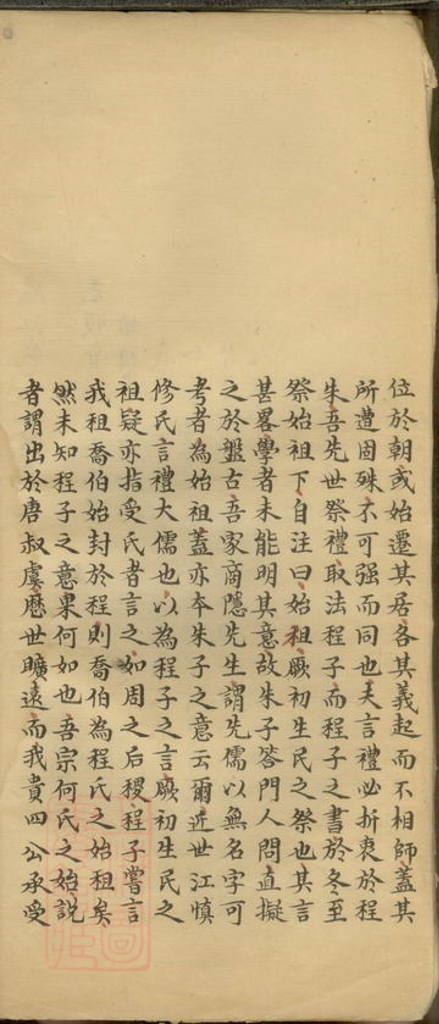 位於朝或始遷其居各其義起而不相師蓋其
所遭固殊不可强而同也夫言禮必折衷於程
朱吾先世祭禮取法程子而程子之書於冬至
祭始祖下自注曰始祖厥初生民之祭也其言
甚畧學者未能明其意故朱子答門人問直擬
之於盤古吾家商隱先生謂先儒以無名字可
考者為始祖蓋亦夲朱子之意云爾近世江慎
修氏言禮大儒也以為程子之言厥初生民之
祖疑亦指受氏者言之如周之后稷程子嘗言
我祖喬伯始封於程則喬伯為程氏之始祖矣
然未知程子之意果何如也吾宗何氏之始説
者謂出於唐叔虞歷世曠遠而我貴四公承受